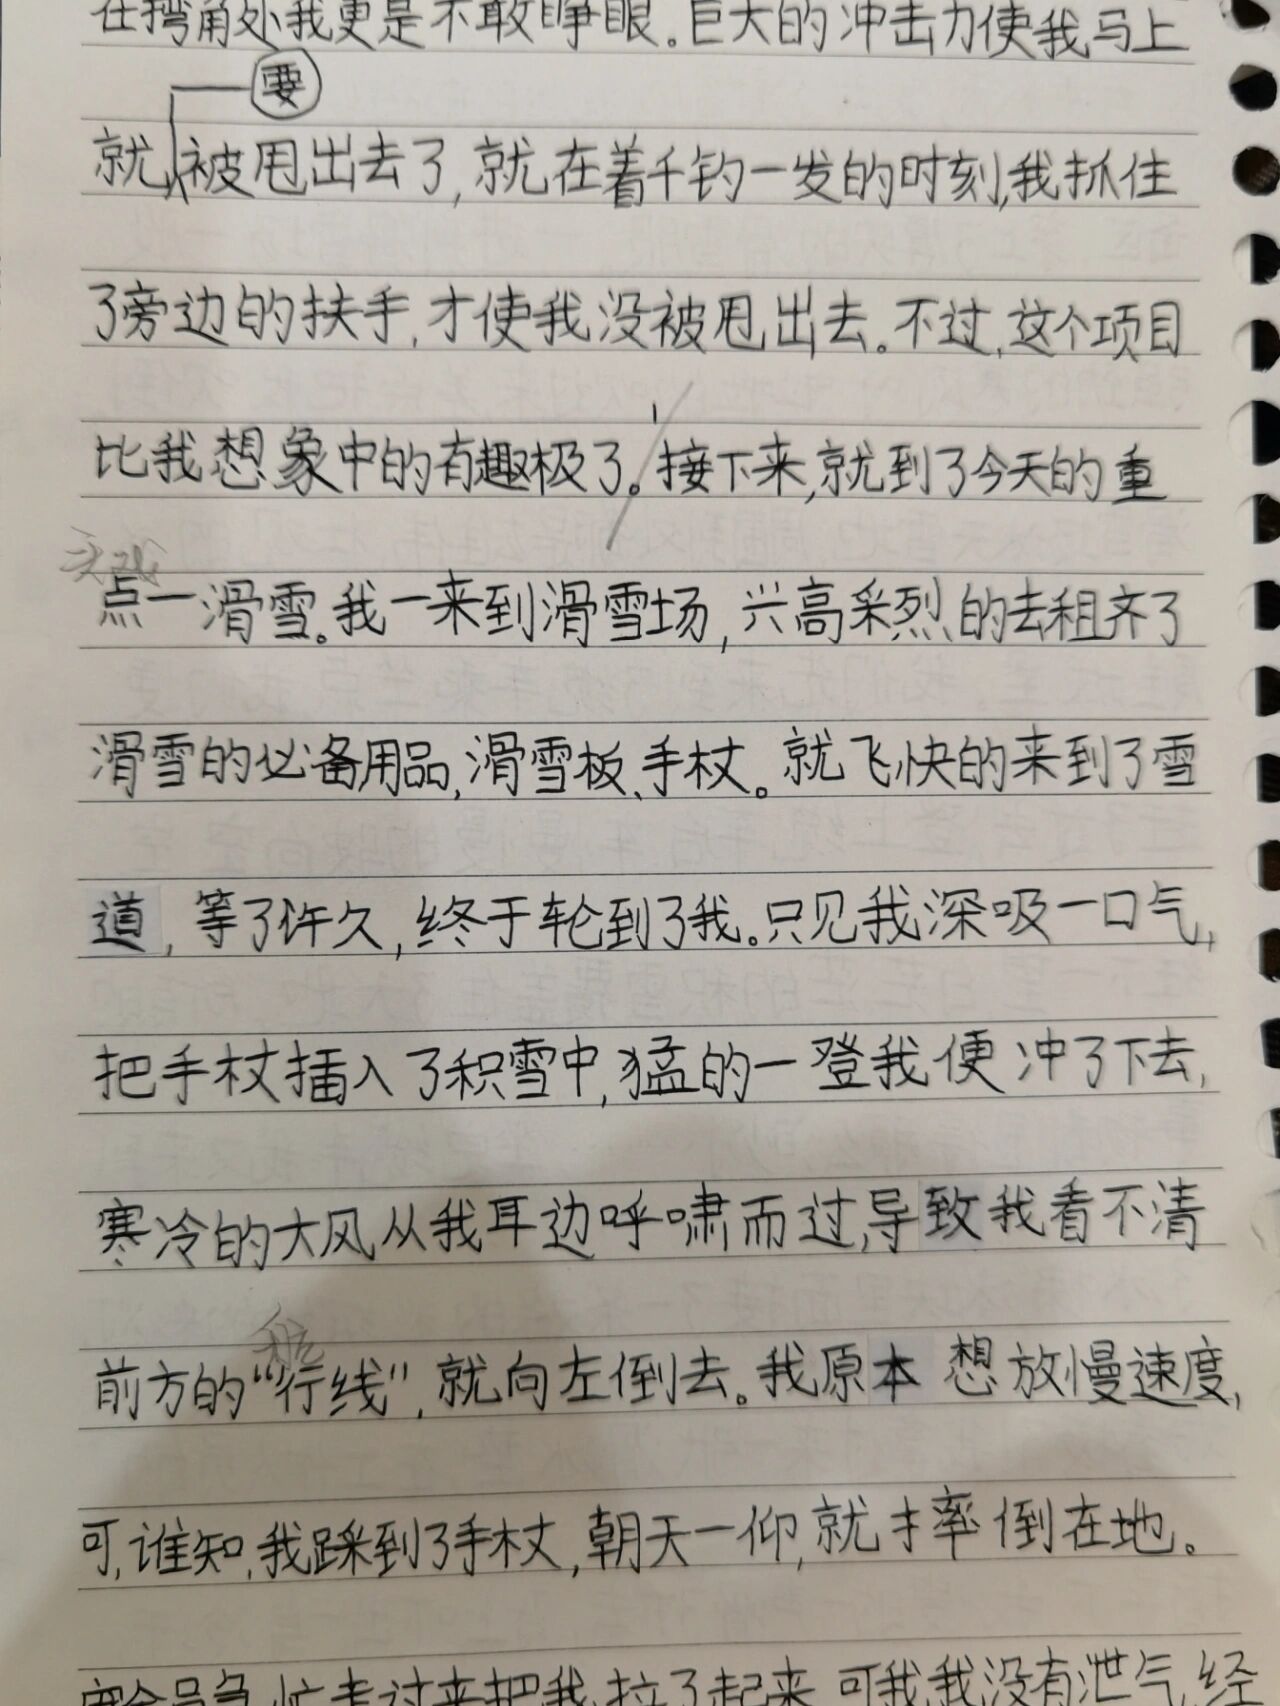 在拐角处我更是不敢睁眼。巨大的冲击力使我马上
要
就被甩出去了,就在着千钧一发的时刻,我抓住
了旁边的扶手,才使我没被甩出去。不过,这个项目
比我想象中的有趣极了。接下来,就到了今天的重
点一滑雪。我一来到滑雪场,兴高采烈的去租齐了
滑雪的必备用品,滑雪板、手杖。就飞快的来到了雪
道,等了许久,终于轮到了我。只见我深吸一口气,
把手杖插入了积雪中,猛的一登我便冲了下去,
寒冷的大风从我耳边呼啸而过,导致我看不清
航
前方的“行线”,就向左倒去。我原本想放慢速度,
可,谁知,我踩到了手杖,朝天一仰,就摔倒在地。
安全员急忙走过来把我拉了起来,可我我没有泄气,经